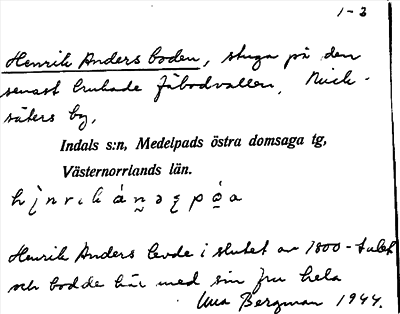 1-3
Henrik Anders boden, stuga på den
senast brukade fäbodvallen, Näck-
säters by,
Indals s:n, Medelpads östra domsaga tg,
Västernorrlands län.
Henrik Anders levde i slutet av 1800-talet
och bodde här med sin fru hela
Bergman 1944.